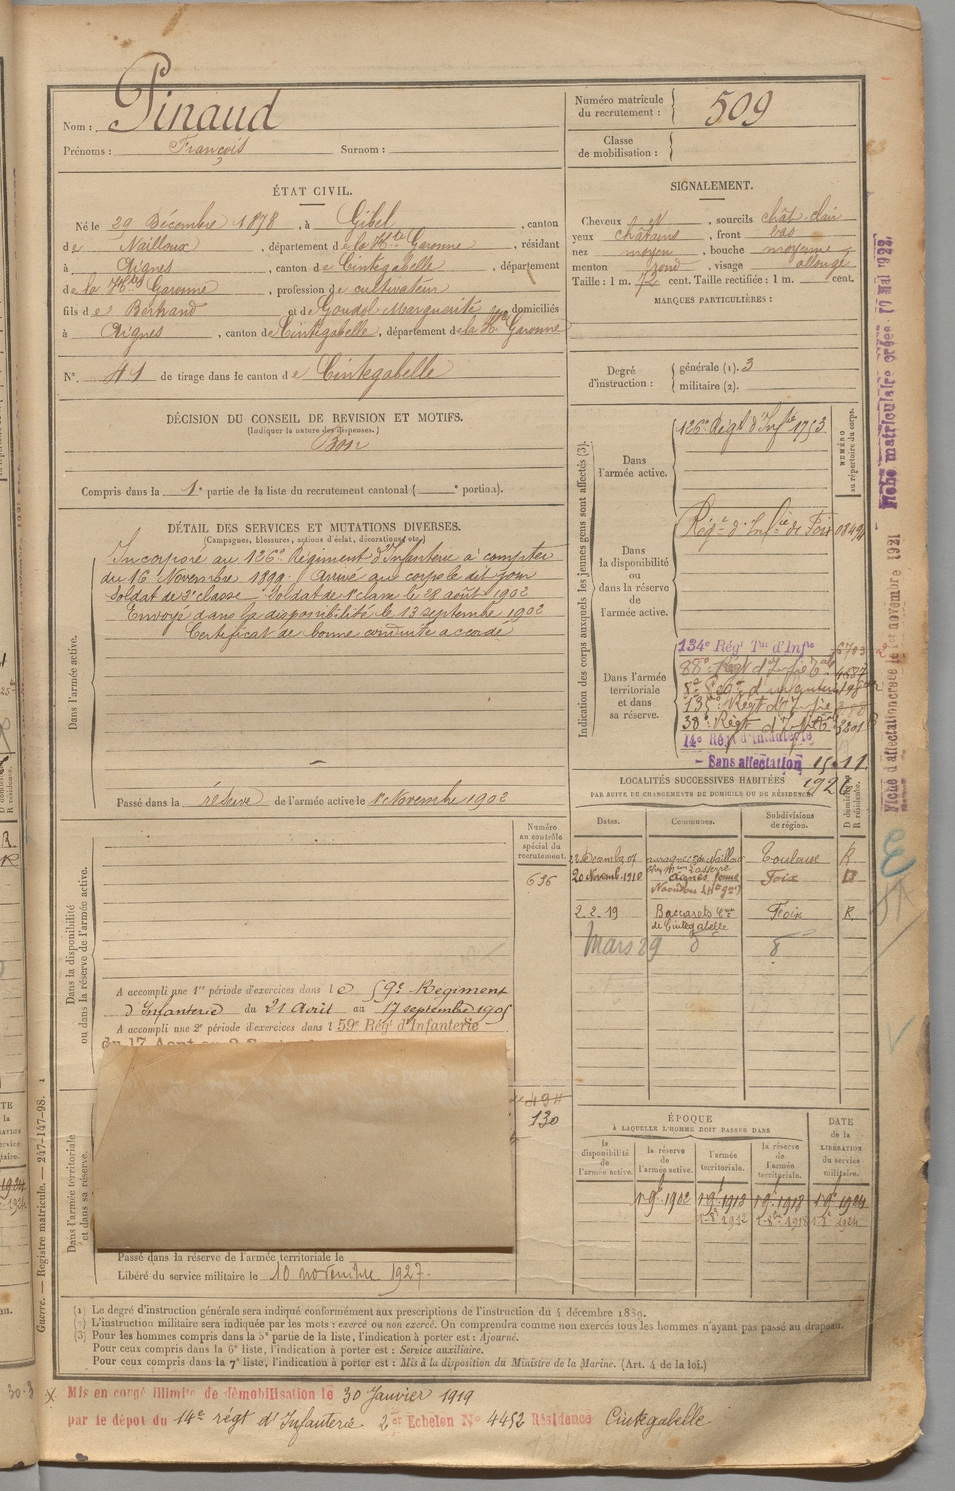 Nom : Pinaud
Prénoms : François Surnom :
Numéro matricule
du recrutement : 509
Classe
de mobilisation :
ÉTAT CIVIL.
Né le 29 Décembre 1878, à Gibel, canton
de Nailloux, département de la Hte Garonne, résidant
à Aignes, canton de Cintegabelle, département
de la Hte Garonne, profession de cultivateur
fils de Bertrand et de Goudol Marguerite domiciliés
à Aignes, canton de Cintegabelle, département de la Hte Garonne
N° 41 de tirage dans le canton de Cintegabelle
SIGNALEMENT.
Cheveux N, sourcils chât clair
yeux châtains, front bas
nez moyen, bouche moyenne
menton rond, visage allongé
Taille : 1 m. 72 cent. Taille rectifiée : 1 m. cent.
MARQUES PARTICULIÈRES :
Degré
d'instruction :
générale (1). 3
militaire (2).
DÉCISION DU CONSEIL DE REVISION ET MOTIFS.
(Indiquer la nature des dispenses.)
Bon
Compris dans la 1e partie de la liste du recrutement cantonal ( e portion).
DÉTAIL DES SERVICES ET MUTATIONS DIVERSES.
(Campagnes, blessures, actions d'éclat, décorations, etc.)
Dans l'armée active.
Incorporé au 126e Régiment d'Infanterie à compter
du 16 Novembre 1899. Arrivé au corps le dit jour
Soldat de 2e classe. Soldat de 1e classe le 28 août 1902
Envoyé dans la disponibilité le 13 septembre 1902
Certificat de bonne conduite accordé
Passé dans la réserve de l'armée active le 1er Novembre 1902
Indication des corps auxquels les jeunes gens sont affectés (3).
NUMÉRO
au répertoire du corps.
Dans
l'armée active.
126e Régt d'Infie 1753
Dans
la disponibilité
ou
dans la réserve
de
l'armée active.
Régt d'Infie de Foix
Dans l'armée
territoriale
et dans
sa réserve.
134e Régt Tal d'Infie
88e Régt d'Infie
135e Régt d'Infie
30e Régt d'Infie
14e Régt d'infanterie
- Sans affectation 15.11.
1926
LOCALITÉS SUCCESSIVES HABITÉES
PAR SUITE DE CHANGEMENTS DE DOMICILE OU DE RÉSIDENCE.
D domicile.
R résidence.
Dates.
Communes.
Subdivisions
de région.
Toulouse R
20 Novemb. 1910 Aignes Foix D
2.2.19 Baccarets Cne Foix R
de Cintegabelle
Mars 29 d° d°
Dans la disponibilité
ou dans la réserve de l'armée active.
Numéro
au contrôle
spécial du
recrutement.
636
A accompli une 1re période d'exercices dans le 59e Régiment
d'Infanterie du 21 Avril au 17 septembre 1905
A accompli une 2e période d'exercices dans l 59e Rég. d'Infanterie
Dans l'armée territoriale
et dans sa réserve.
130
Passé dans la réserve de l'armée territoriale le
Libéré du service militaire le 10 novembre 1927.
ÉPOQUE
À LAQUELLE L'HOMME DOIT PASSER DANS
la
disponibilité
de
l'armée active.
la réserve
de
l'armée active.
l'armée
territoriale.
la réserve
de
l'armée
territoriale.
DATE
de la
LIBÉRATION
du service
militaire.
1 9bre 1902 1 9bre 1912 1 9bre 1918 1 9bre 1924
(1) Le degré d'instruction générale sera indiqué conformément aux prescriptions de l'instruction du 4 décembre 1889.
(2) L'instruction militaire sera indiquée par les mots : exercé ou non exercé. On comprendra comme non exercés tous les hommes n'ayant pas passé au drapeau.
(3) Pour les hommes compris dans la 5e partie de la liste, l'indication à porter est : Ajourné.
Pour ceux compris dans la 6e liste, l'indication à porter est : Service auxiliaire.
Pour ceux compris dans la 7e liste, l'indication à porter est : Mis à la disposition du Ministre de la Marine. (Art. 4 de la loi.)
Mis en congé illimité de démobilisation le 30 Janvier 1919
par le dépot du 14e régt d'Infanterie 2er Echelon No 4452 Résidence Cintegabelle
Guerre. — Registre matricule. — 247-147-98.
Fiche matriculaire créée 17 Mai 1922.
Fiche d'affectation créée le 1er novembre 1921